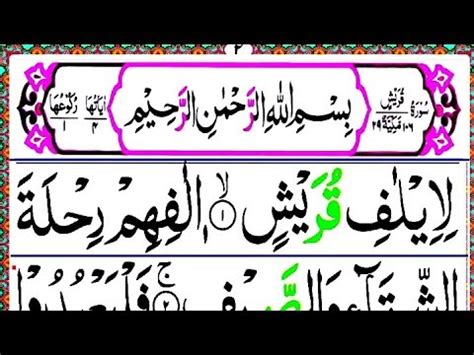 ٢
سُورَةُ قُرَيْشٍ
١٠٦ مَكِّيَّةٌ ٢٩
بِسْمِ اللهِ الرَّحْمٰنِ الرَّحِيْمِ
اٰيَاتُهَا ٤ رُكُوْعُهَا ١
لِاِيْلٰفِ قُرَيْشٍ ۙ﴿۱﴾ اٖلٰفِهِمْ رِحْلَةَ
الشِّتَآءِ وَالصَّيْفِ ۚ﴿۲﴾ فَلْيَعْبُدُوْا